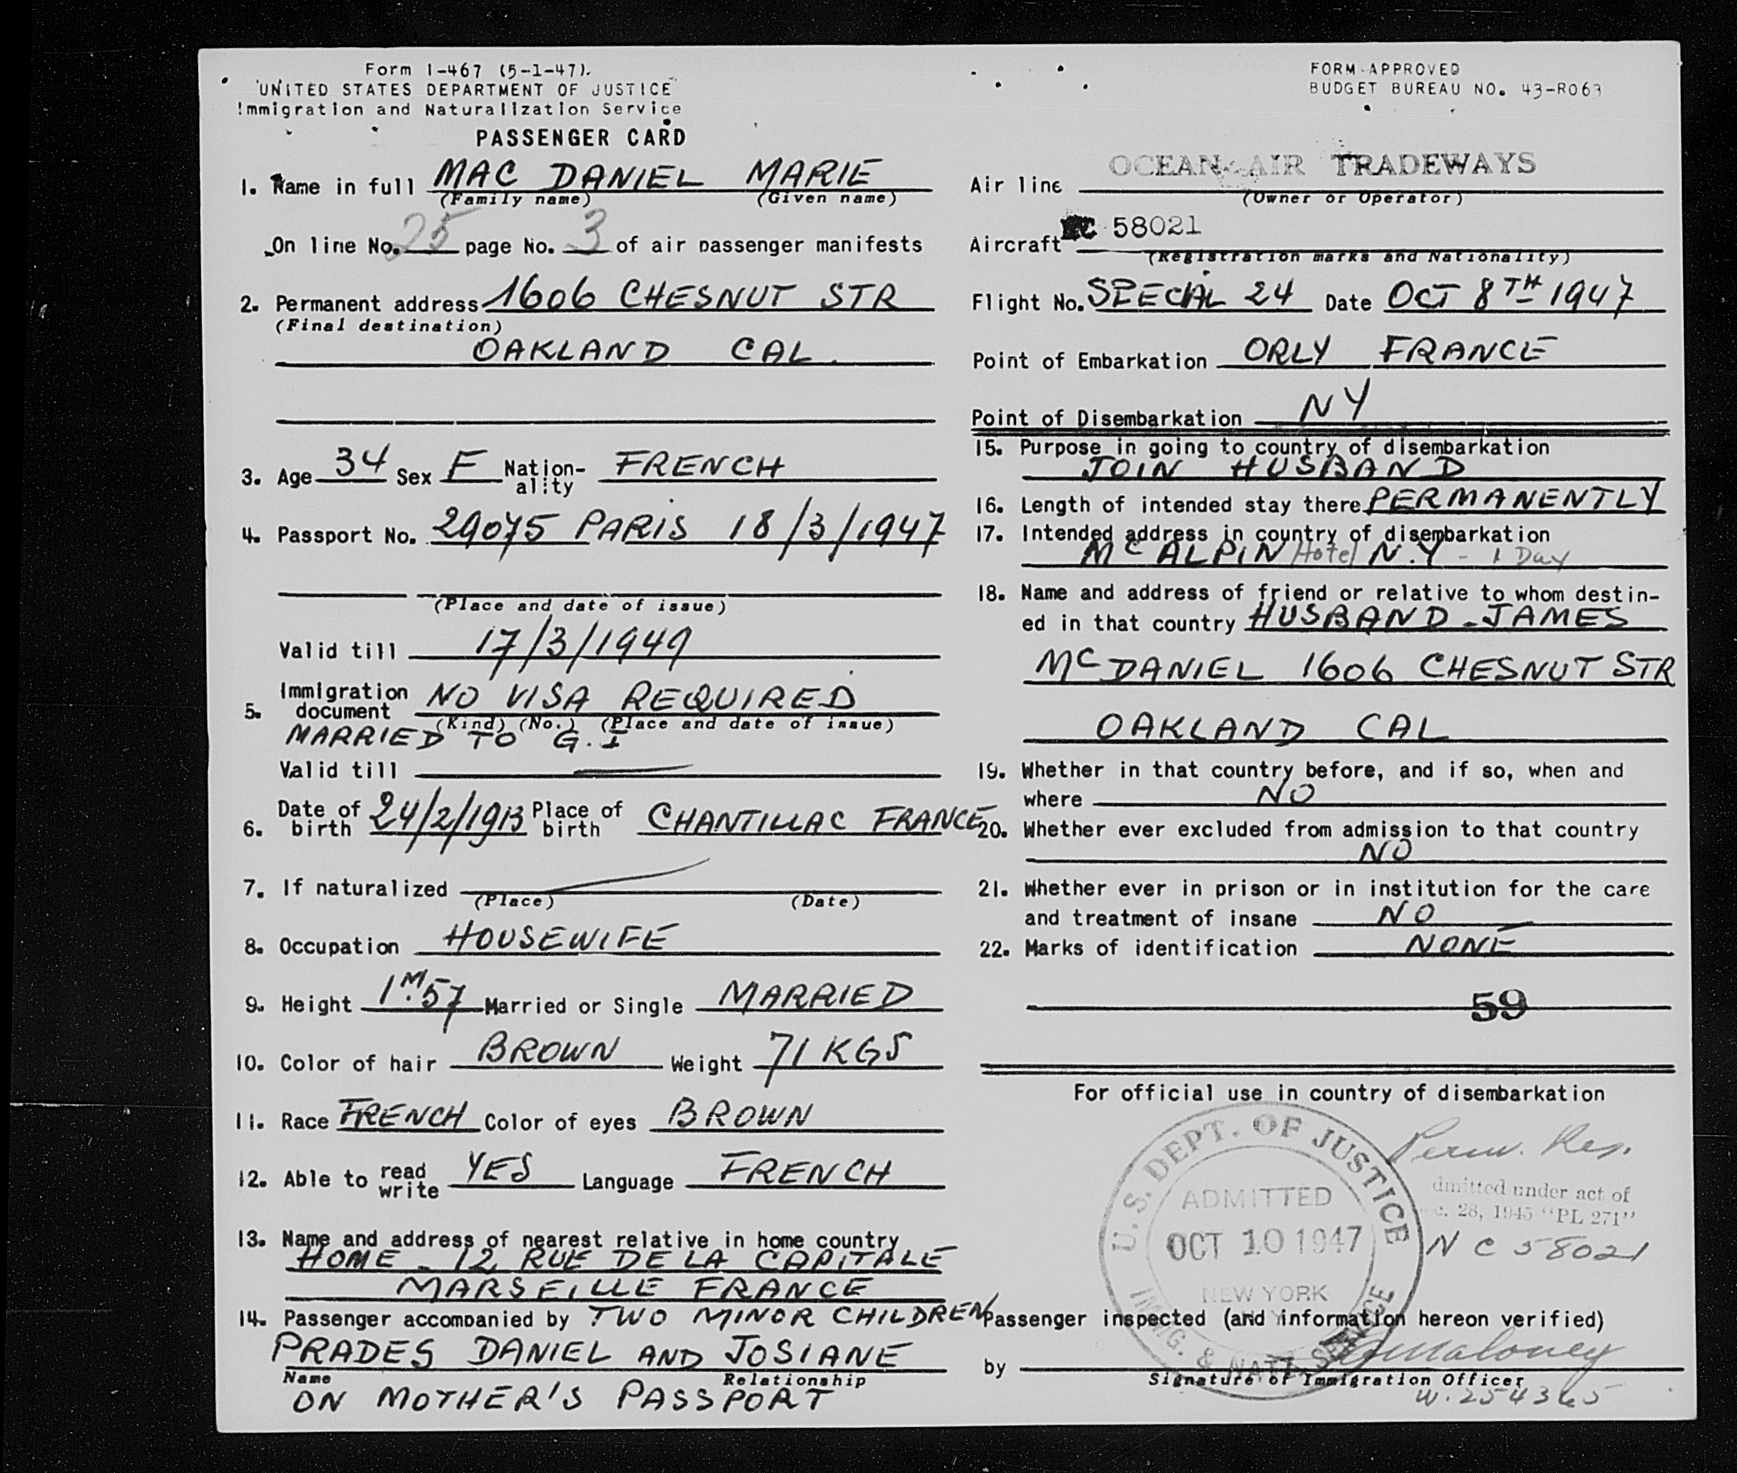 Form I-467 (5-1-47).
UNITED STATES DEPARTMENT OF JUSTICE
Immigration and Naturalization Service
PASSENGER CARD
1. Name in full MAC DANIEL MARIE
(Family name) (Given name)
On line No. 25 page No. 3 of air passenger manifests
2. Permanent address 1606 CHESNUT STR
(Final destination)
OAKLAND CAL.
3. Age 34 Sex F Nation-ality FRENCH
4. Passport No. 29075 PARIS 18/3/1947
(Place and date of issue)
Valid till 17/3/1949
5. Immigration document NO VISA REQUIRED
(Kind) (No.) (Place and date of issue)
MARRIED TO G.I
Valid till
6. Date of birth 24/2/1913 Place of birth CHANTILLAC FRANCE
7. If naturalized
(Place) (Date)
8. Occupation HOUSEWIFE
9. Height 1M.57 Married or Single MARRIED
10. Color of hair BROWN Weight 71 KGS
11. Race FRENCH Color of eyes BROWN
12. Able to read write YES Language FRENCH
13. Name and address of nearest relative in home country
HOME - 12, RUE DE LA CAPITALE
MARSEILLE FRANCE
14. Passenger accompanied by TWO MINOR CHILDREN
PRADES DANIEL AND JOSIANE
Name Relationship
ON MOTHER'S PASSPORT
FORM APPROVED
BUDGET BUREAU NO. 43-R063
Air line OCEAN-AIR TRADEWAYS
(Owner or Operator)
Aircraft NC 58021
(Registration marks and Nationality)
Flight No. SPECIAL 24 Date OCT 8TH 1947
Point of Embarkation ORLY FRANCE
Point of Disembarkation NY
15. Purpose in going to country of disembarkation
JOIN HUSBAND
16. Length of intended stay there PERMANENTLY
17. Intended address in country of disembarkation
MC ALPIN Hotel N.Y - 1 Day
18. Name and address of friend or relative to whom destin-
ed in that country HUSBAND - JAMES
MC DANIEL 1606 CHESNUT STR
OAKLAND CAL
19. Whether in that country before, and if so, when and
where NO
20. Whether ever excluded from admission to that country
NO
21. Whether ever in prison or in institution for the care
and treatment of insane NO
22. Marks of identification NONE
59
For official use in country of disembarkation
U.S. DEPT. OF JUSTICE
ADMITTED
OCT 10 1947
NEW YORK
N.Y.
IMMIG. & NATZ. SERVICE
Perm. Res.
dmitted under act of
c. 28, 1945 "PL 271"
N C 58021
Passenger inspected (and information hereon verified)
by Maloney
Signature of Immigration Officer
W. 254365